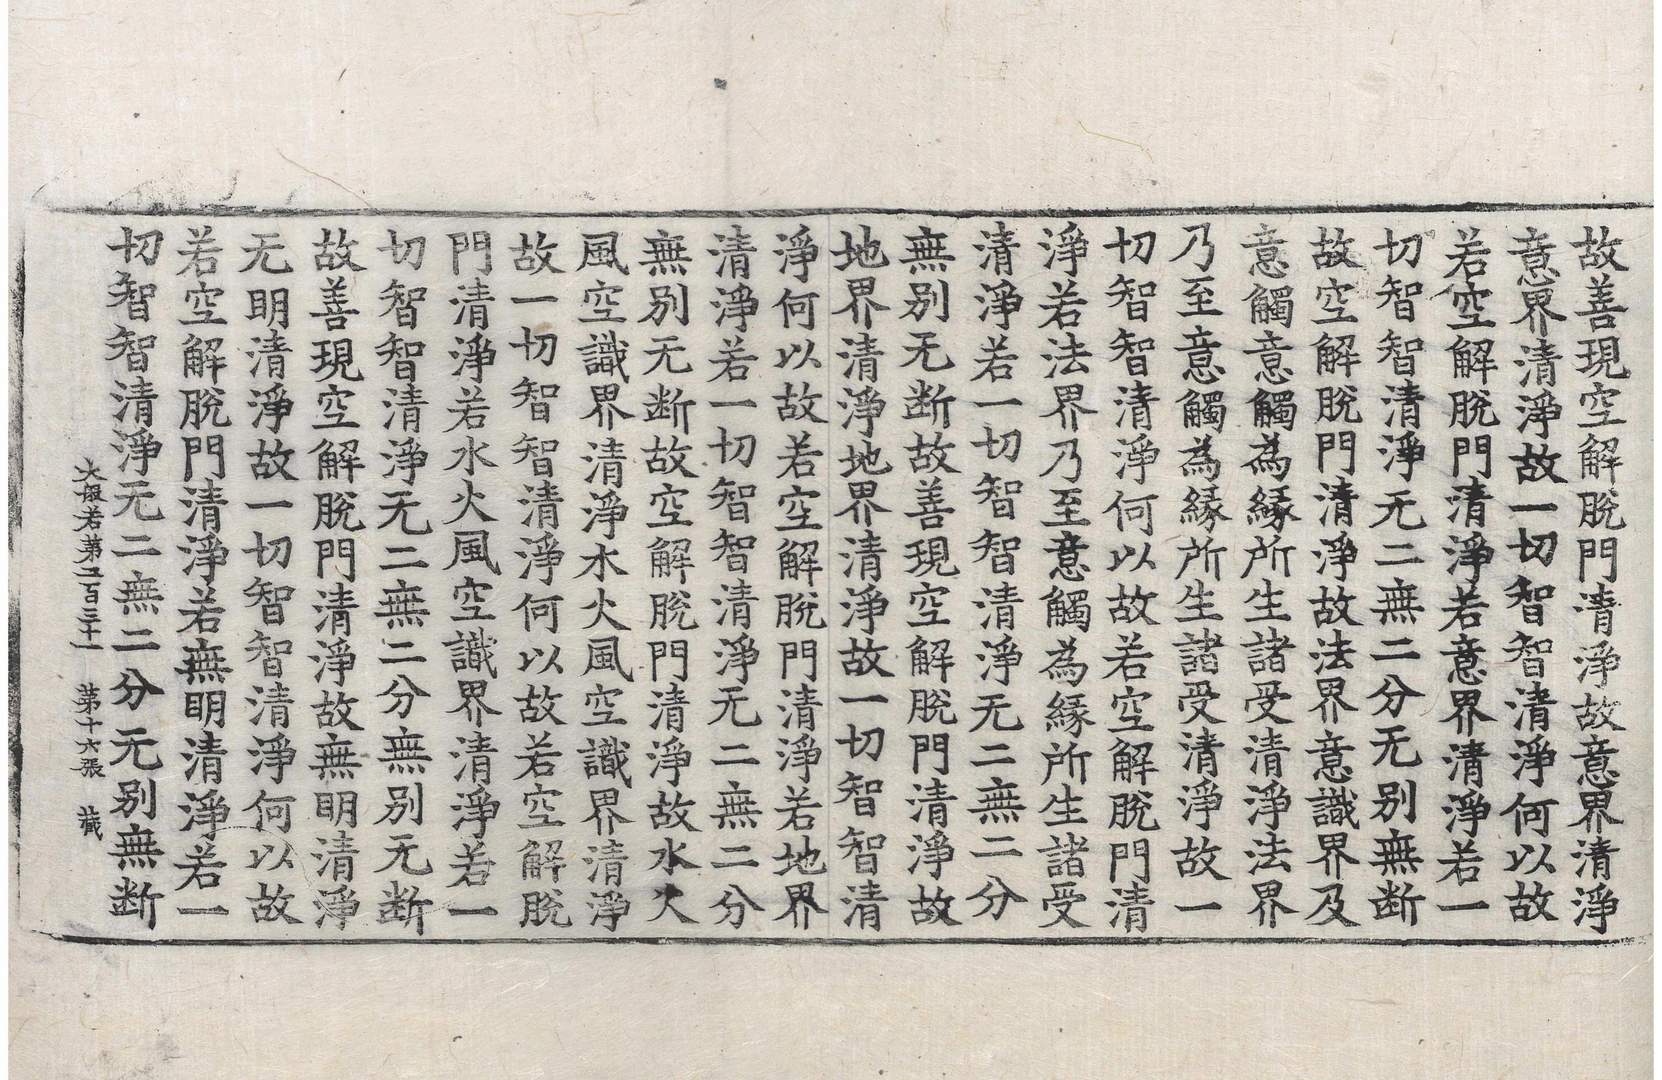 故善現空解脫門清淨故意界清淨
意界清淨故一切智智清淨何以故
若空解脫門清淨若意界清淨若一
切智智清淨无二無二分无別無断
故空解脫門清淨故法界意識界及
意觸意觸為緣所生諸受清淨法界
乃至意觸為緣所生諸受清淨故一
切智智清淨何以故若空解脫門清
淨若法界乃至意觸為緣所生諸受
清淨若一切智智清淨无二無二分
無別无断故善現空解脫門清淨故
地界清淨地界清淨故一切智智清
淨何以故若空解脫門清淨若地界
清淨若一切智智清淨无二無二分
無別无断故空解脫門清淨故水火
風空識界清淨水火風空識界清淨
故一切智智清淨何以故若空解脫
門清淨若水火風空識界清淨若一
切智智清淨无二無二分無別无断
故善現空解脫門清淨故無明清淨
无明清淨故一切智智清淨何以故
若空解脫門清淨若無明清淨若一
切智智清淨无二無二分无別無断
大般若第二百三十一 第十六張 藏